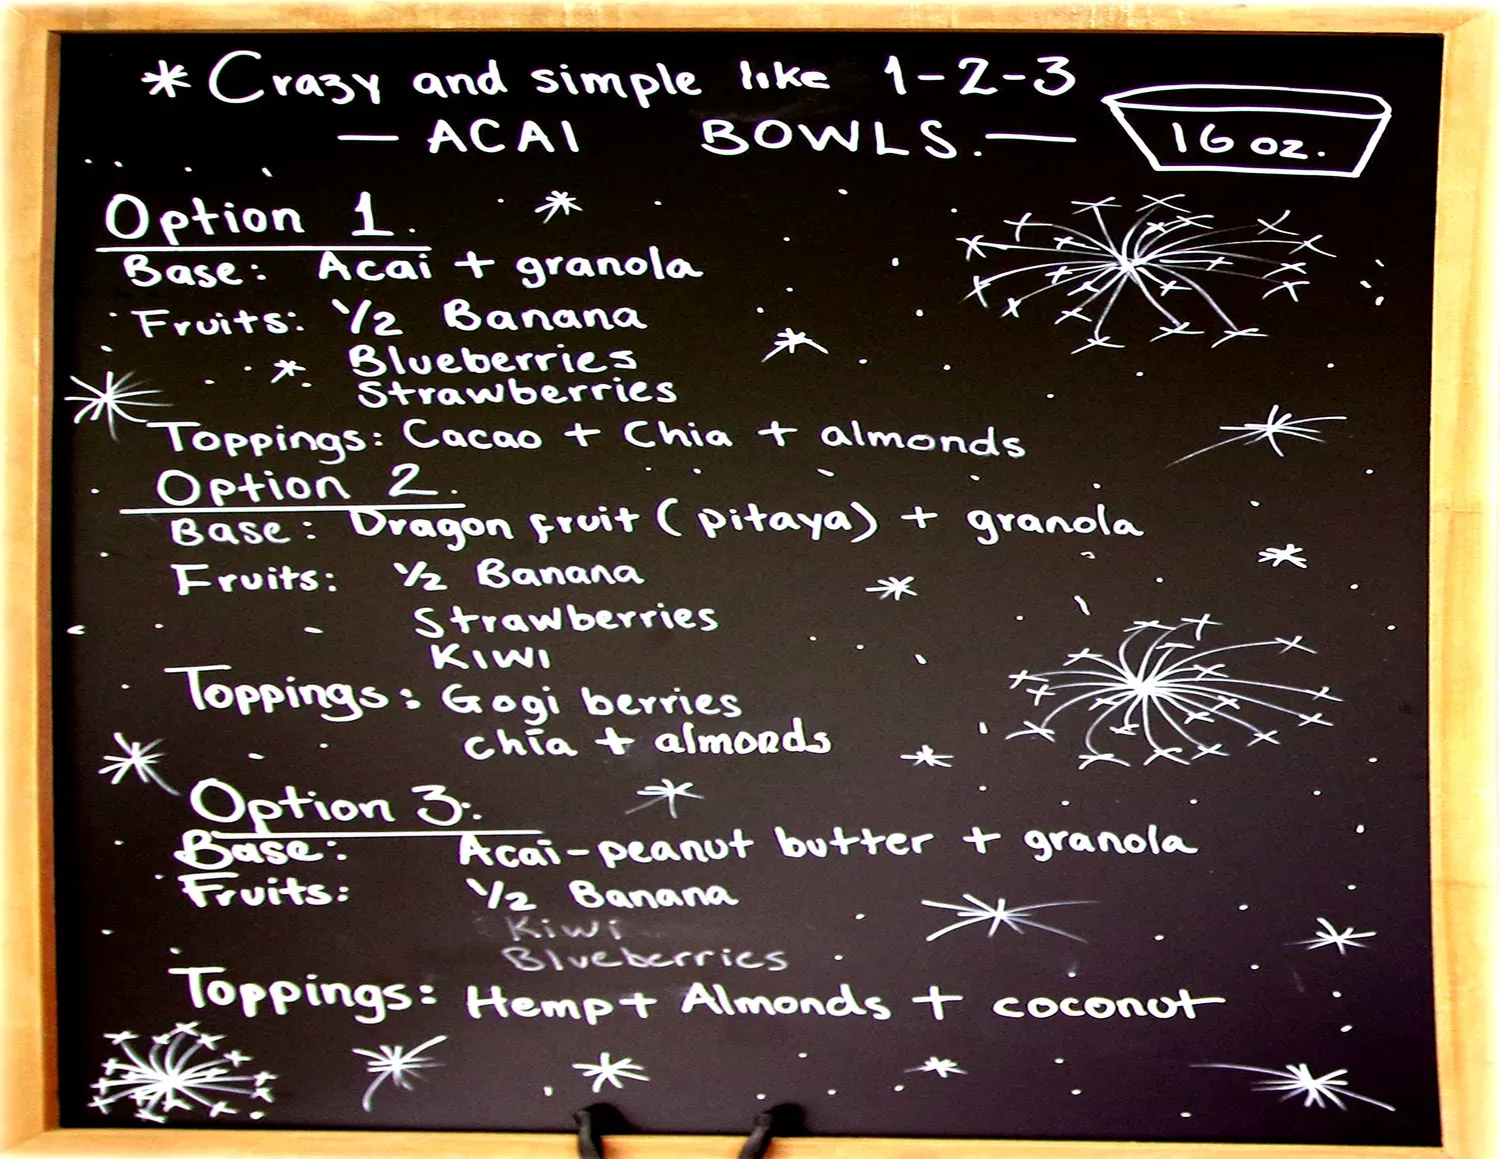 * Crazy and simple like 1-2-3
— ACAI BOWLS. —
16 oz.
Option 1.
Base: Acai + granola
Fruits: 1/2 Banana
Blueberries
Strawberries
Toppings: Cacao + Chia + almonds
Option 2.
Base: Dragon fruit (pitaya) + granola
Fruits: 1/2 Banana
Strawberries
KIWI
Toppings: Gogi berries
chia + almonds
Option 3.
Base: Acai-peanut butter + granola
Fruits: 1/2 Banana
Kiwi
Blueberries
Toppings: Hemp + Almonds + coconut